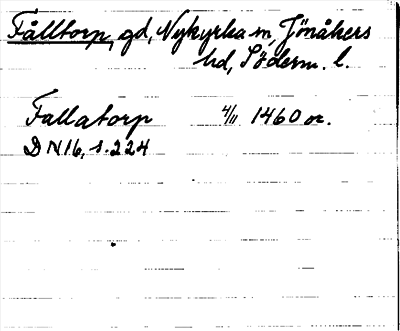 Fålltorp, gd, Nykyrka sn, Jönåkers
hd, Söderm. l.
Fallatorp 4/11 1460 or.
DN16, s. 224